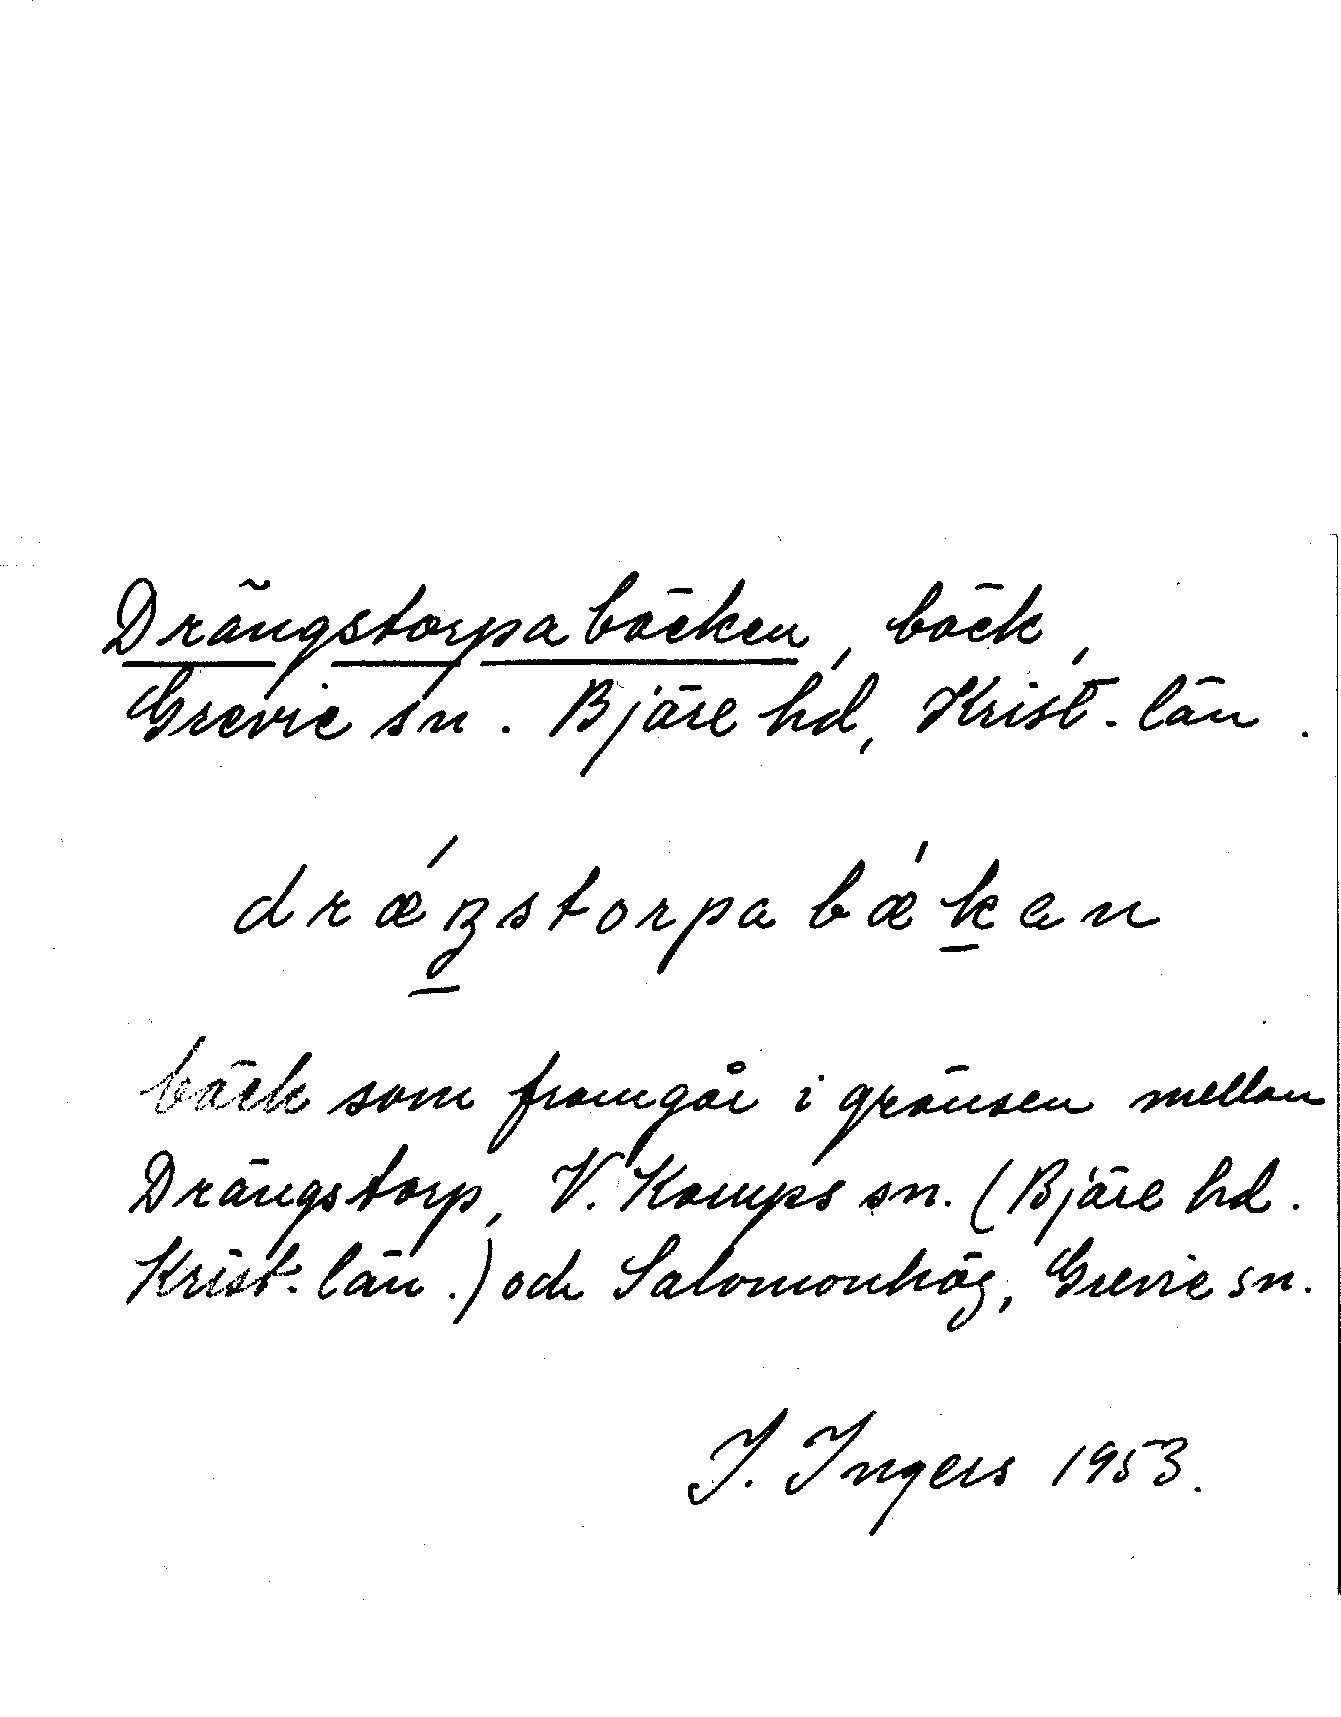 Drängstorpabäcken, bäck,
Grevie sn. Bjäre hd, Krist. län.
dræ´ŋstorpabæ´kan
bäck som framgår i gränsen mellan
Drängstorp, V. Karups sn. (Bjäre hd.
Krist. län.) och Salomonhög, Grevie sn.
I. Ingers 1953.